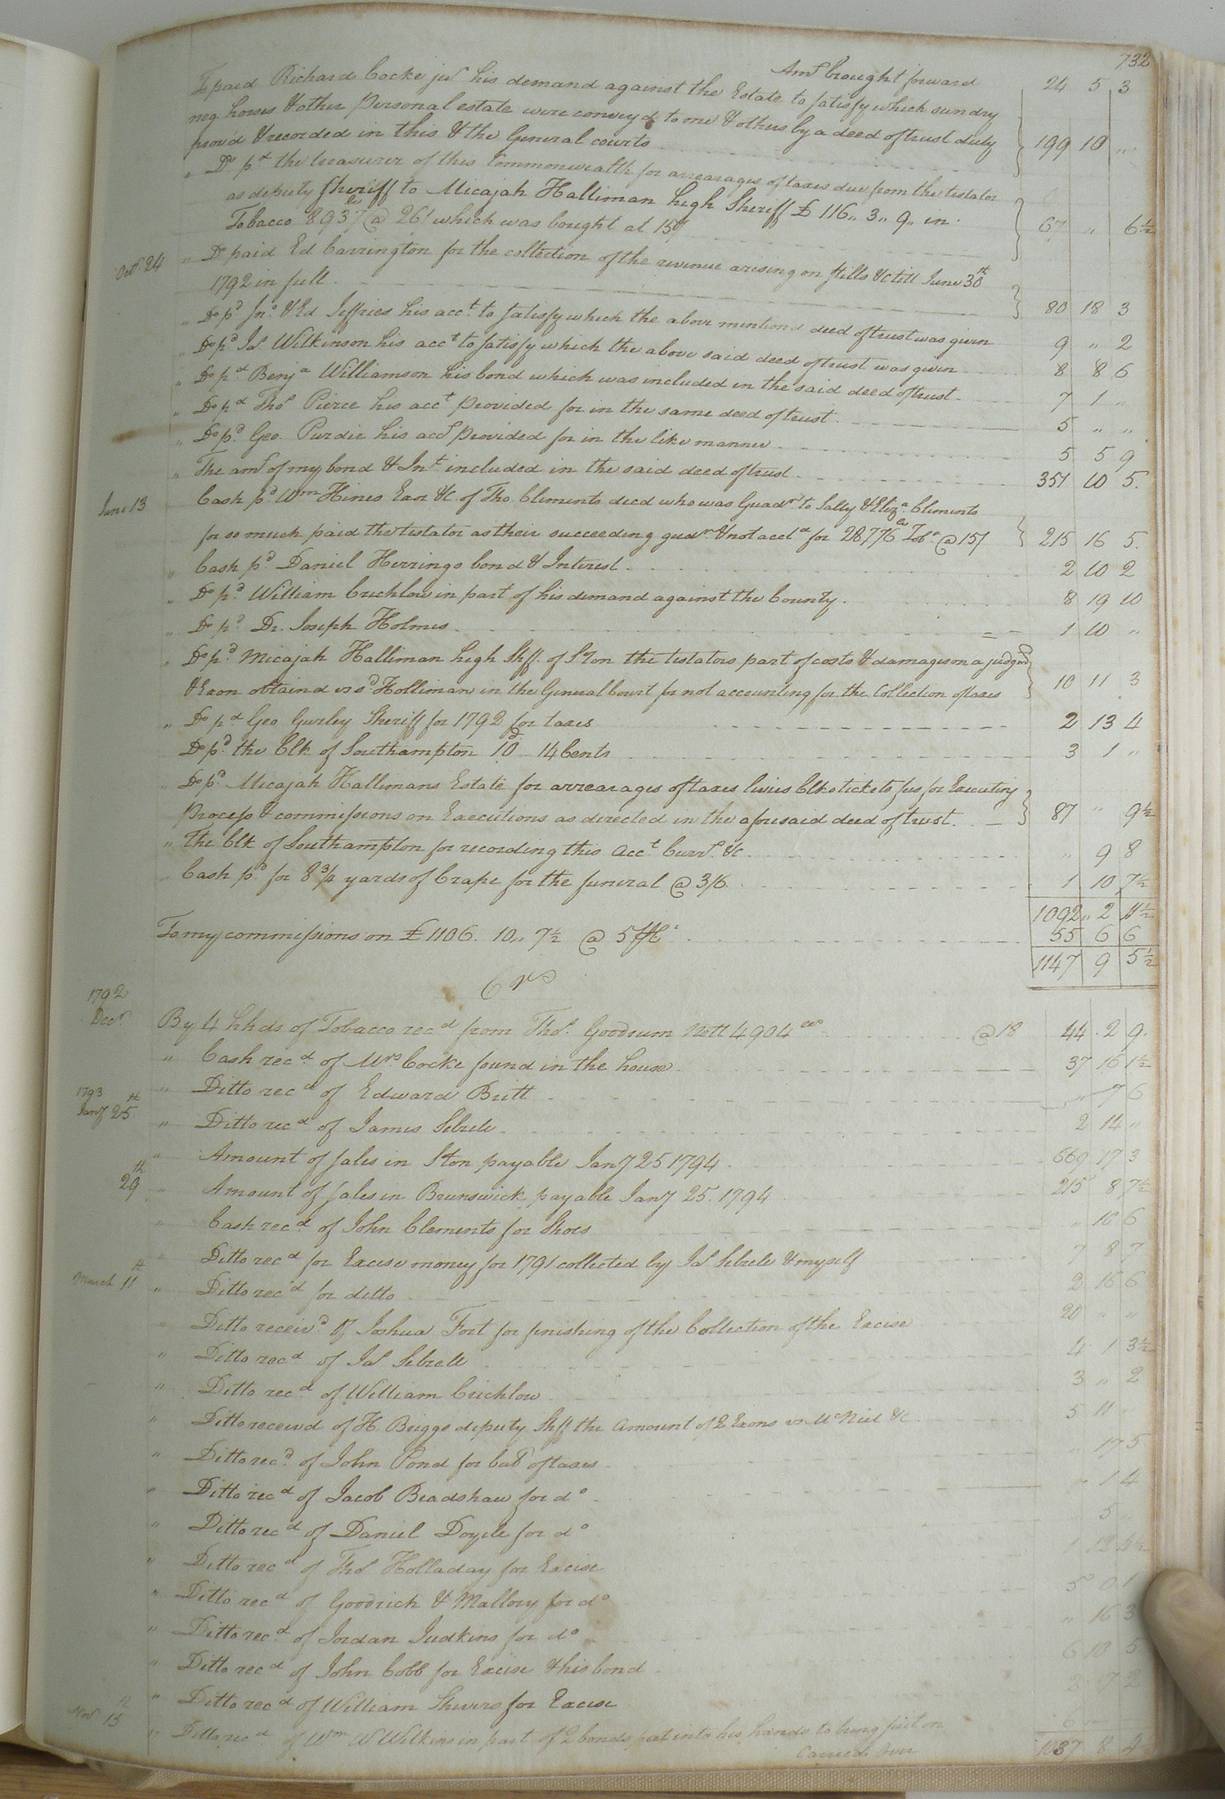 732
Amt brought forward 24 5 3
To paid Richard Cocke jur his demand against the Estate to satisfy which sundry
neg. horses & other Personal estate were convey'd to me & others by a deed of trust duly
prov'd & recorded in this & the General courts 199 10 "
" Do pd the treasurer of this Commonwealth for arrearages of taxes due from the testator
as deputy Sheriff to Micajah Holliman high Sheriff £ 116,, 3,, 9,, in
Tobacco 8937 @ 26/ which was bought at 15/ 67 " 6½
Octr 24 " Do paid Ed Carrington for the collection of the revenue arising on stills &c till June 30th
1792 in full 80 18 3
" Do pd Jno & Ed Jeffries his acct to satisfy which the above mentiond deed of trust was given 9 " 2
" Do pd Jas Wilkinson his acct to satisfy which the above said deed of trust was given 8 8 6
" Do pd Benja Williamson his bond which was included in the said deed of trust 7 1 "
" Do pd Thos Pierce his acct provided for in the same deed of trust 5 " "
" Do pd Geo. Purdie his acct provided for in the like manner 5 5 9
" The amt of my bond & Int included in the said deed of trust 351 10 5
June 13 Cash pd Wm Hines Exor &c. of Tho. Clements decd who was Guardn to Sally & Eliza Clements
for so much paid the testator as their succeeding guardn & not acctd for 28776 Tobo @ 15/ 215 16 5
" Cash pd Daniel Herrings bond & Interest 2 10 2
" Do pd William Crichlow in part of his demand against the County 8 19 10
" Do pd Dr. Joseph Holmes 1 10 "
" Do pd Micajah Holliman high Shff. of Ston the testators part of costs & damages on a judgmt
& Exon obtaind vs sd Holliman in the General Court for not accounting for the Collection of taxes 10 11 3
" Do pd Geo Gurley Sheriff for 1792 for taxes 2 13 4
Do pd the Clk of Southampton 10d 14 Cents 3 1 "
" Do pd Micajah Hollimans Estate for arrearages of taxes levies Clks tickets fees for Executing
Process & commissions on Executions as directed in the aforesaid deed of trust 87 " 9½
" the Clk of Southampton for recording this Acct Currt &c " 9 8
" Cash pd for 8¾ yards of Crape for the funeral @ 3/6 1 10 7½
1092 " 2 11½
To my commissions on £ 1106. 10,, 7½ @ 5 55 6 6
1147 9 5½
Crs
1792
Decr By 4 hhds of Tobacco recd from Thos. Goodrum Nett 4904 @ 18 44 2 9
" Cash recd of Mrs Cocke found in the house 37 16 1½
1793
Jany 25th " Ditto recd of Edward Britt " 7 6
" Ditto recd of James Sebrele 2 14 "
" Amount of sales in Ston payable Jany 25 1794 669 17 3
29th " Amount of sales in Brunswick payable Jany 25. 1794 215 8 7½
" Cash recd of John Clements for Shoes " 16 6
" Ditto recd for Excise money for 1791 collected by Jas Sebrele & myself 7 8 7
March 11th " Ditto recd for ditto 2 16 6
" Ditto receivd of Joshua Fort for finishing of the Collection of the Excise 20 " "
" Ditto recd of Jas Sebrele 4 1 3½
" Ditto recd of William Crichlow 3 " 2
" Ditto receivd of H. Briggs deputy Shff the Amount of 2 Exons vs McNiel &c 5 11
" Ditto recd of John Pond for bal of taxes " 17 5
" Ditto recd of Jacob Bradshaw for do " 1 4
" Ditto recd of Daniel Doyele for do 5
" Ditto recd of Thos Holladay for Excise
" Ditto recd of Goodrich & Mallory for do
" Ditto recd of Jordan Judkins for do " 16 3
" Ditto recd of John Cobb for Excise & his bond 6 10 5
" Ditto recd of William Shivers for Excise
Novr 15 " Ditto recd of Wm W Wilkins in part of 2 bonds put into his hands to bring suit on
Carried Over 1037 8 2